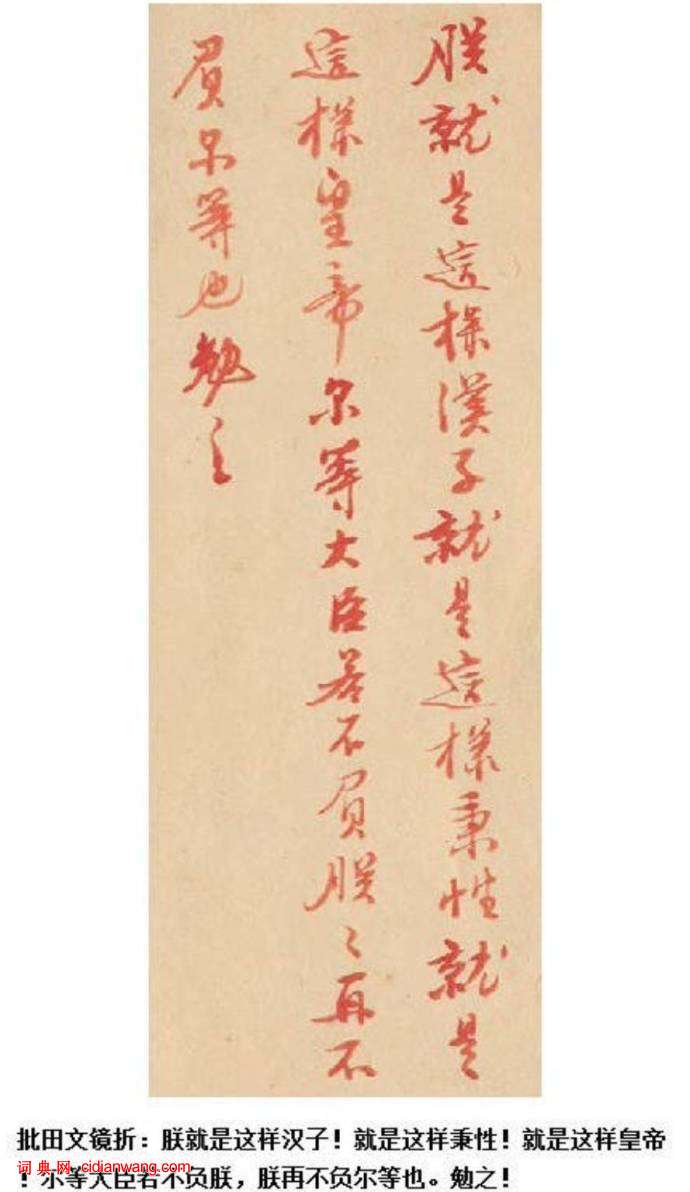 朕就是這樣漢子就是這樣秉性就是
這樣皇帝尔等大臣若不負朕〻再不
負尔等也勉之
批田文镜折：朕就是这样汉子！就是这样秉性！就是这样皇帝
！尔等大臣若不负朕，朕再不负尔等也。勉之！
词典网·cidianwang.com